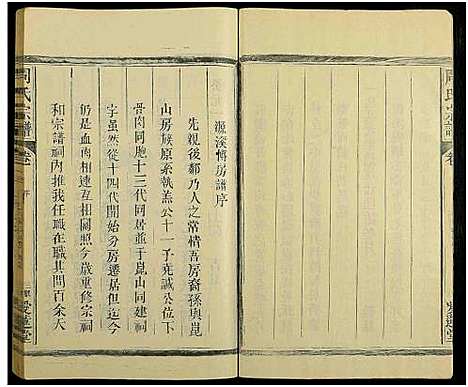 周氏宗譜
卷一
序
愛蓮堂
濂溪慎房譜序
先親後鄰乃人之常情吾房裔孫與崑
山房族原系執羔公十一子堯誠公位下
骨肉同胞十三代同居並于崑山同建祠
字虽然從十四代開始分房遷居但迄今
仍是血肉相連互相圖照今歲重修宗祠
和宗譜祠內推我任職在職其間百余天
周氏宗譜
卷
愛蓮堂